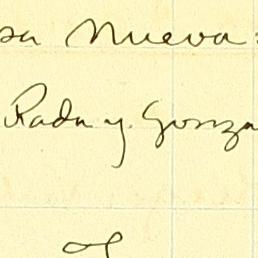 sa Nueva
Rada y Gonza